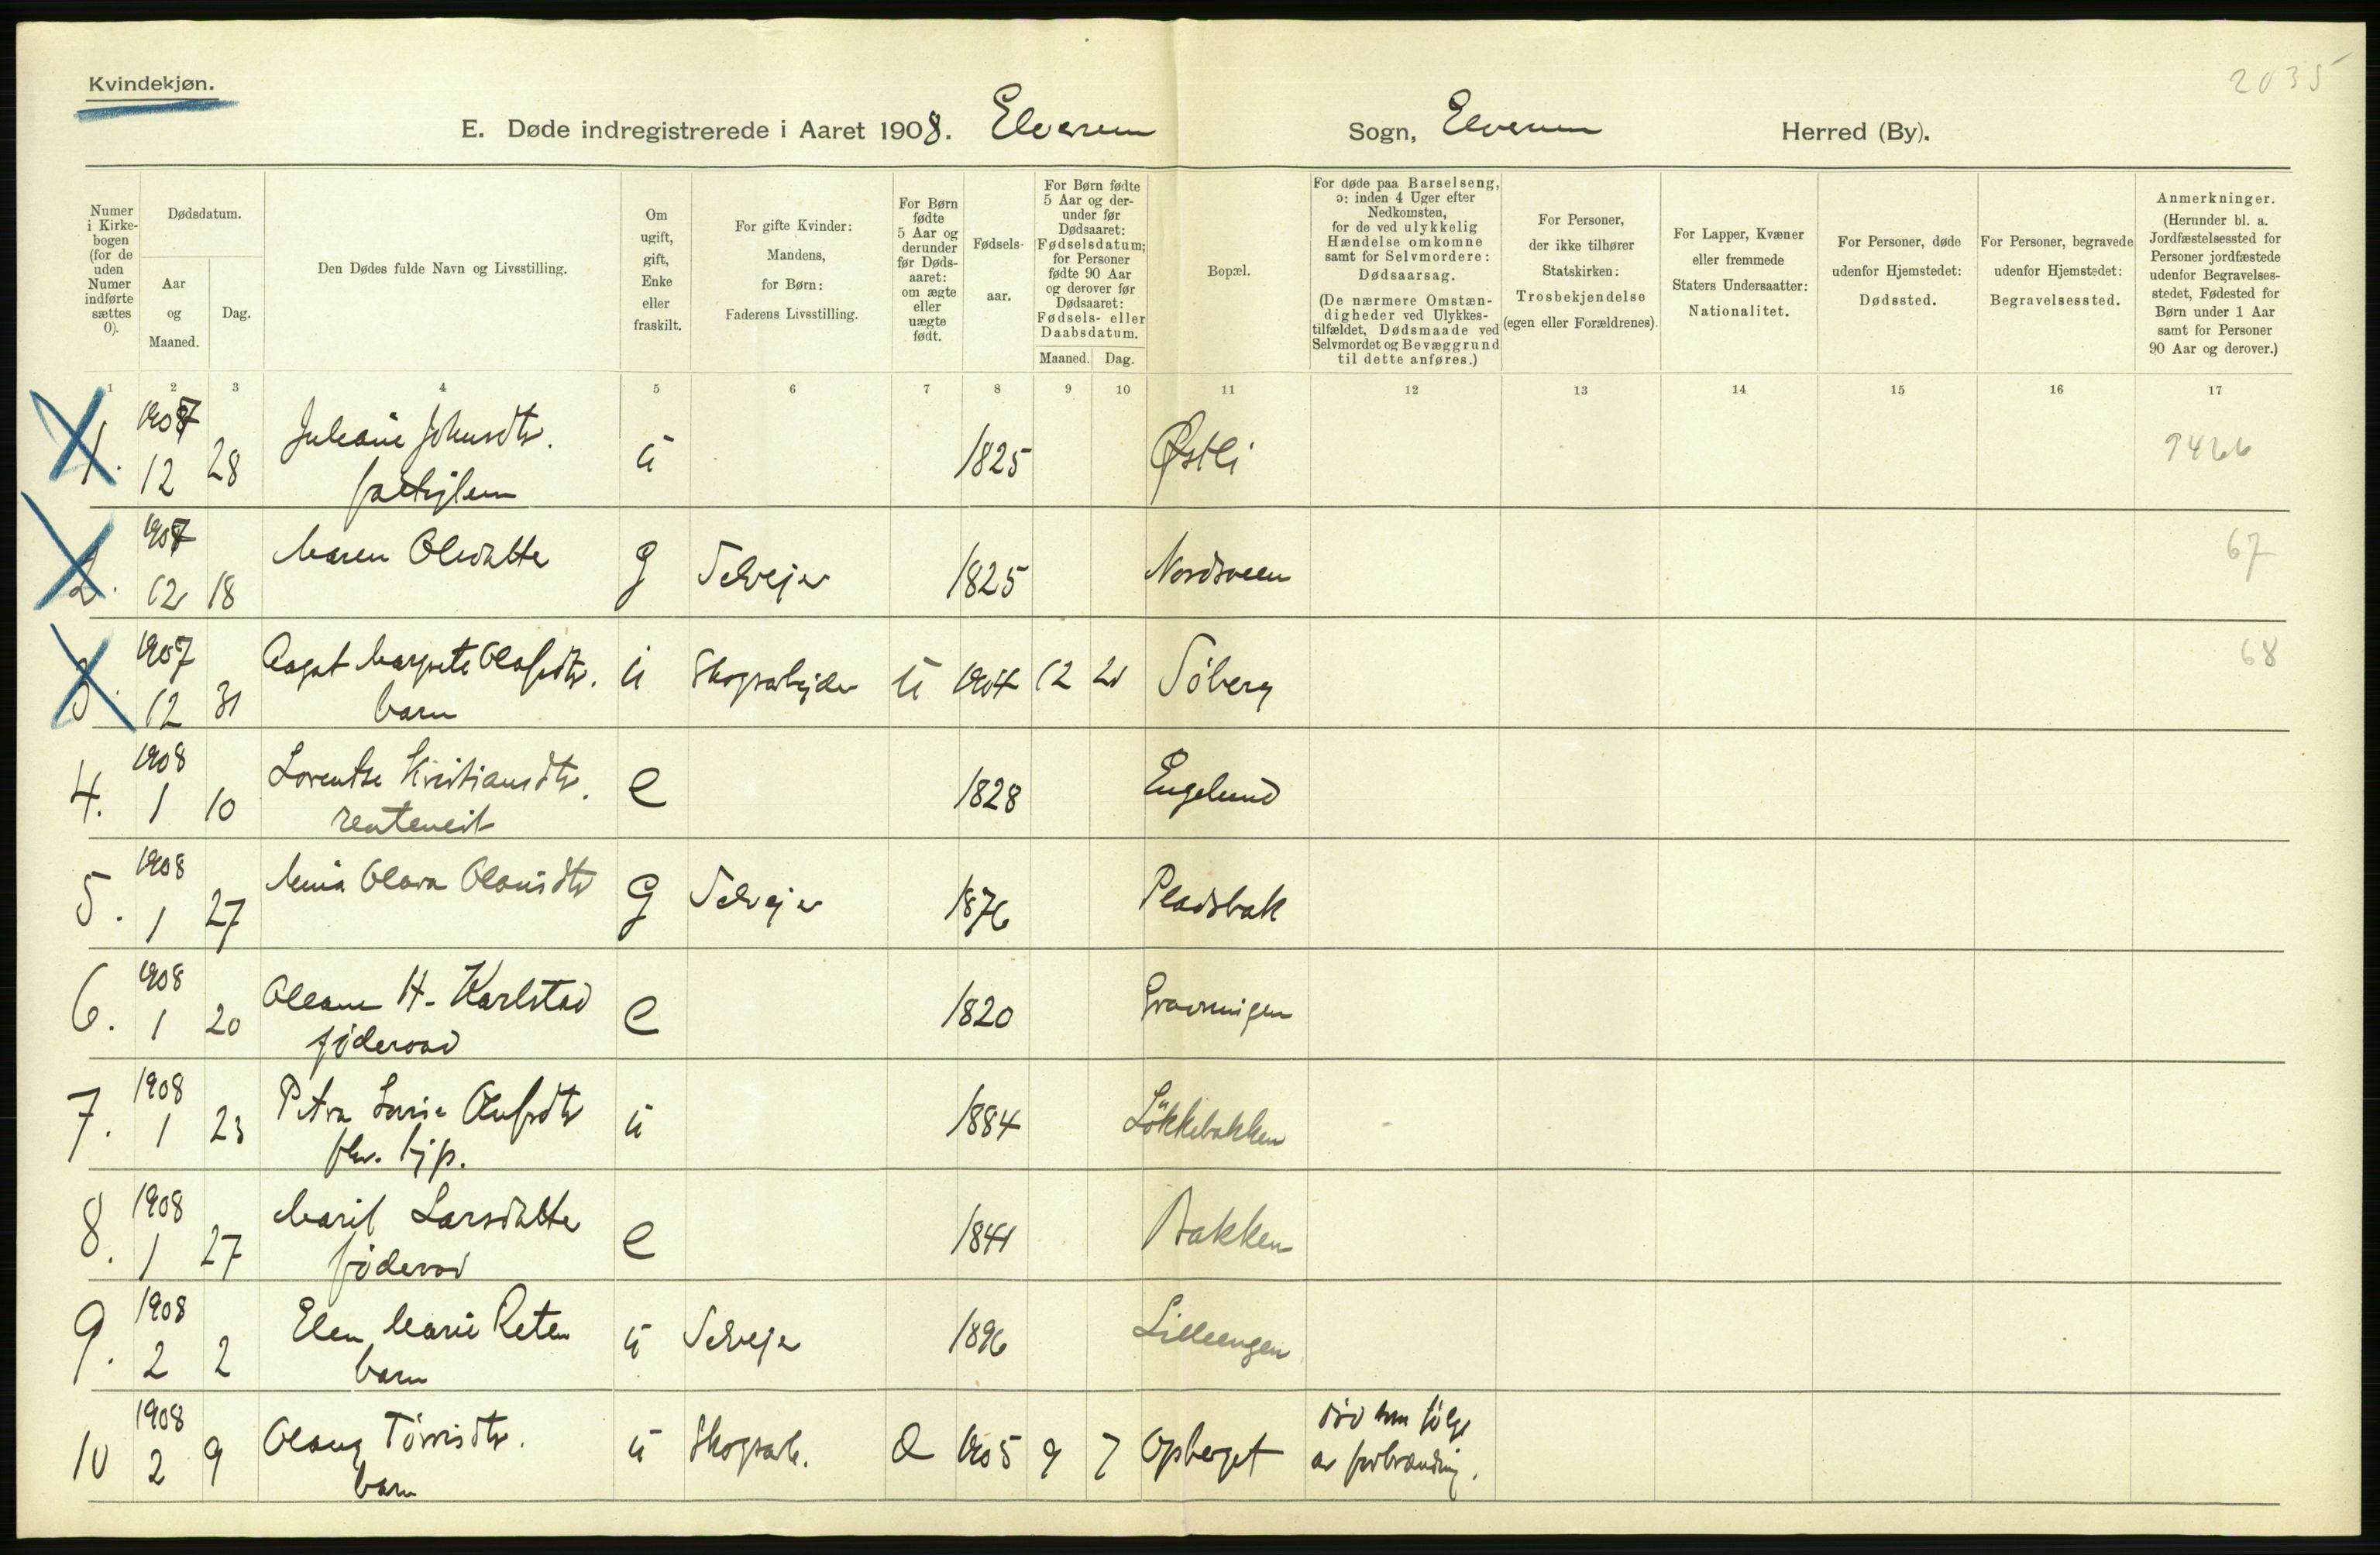 Kvindekjøn.
2035
E. Døde indregistrerede i Aaret 1908. Elverum Sogn, Elverum Herred (By).
Numer i Kirkebogen (for de uden Numer indførte sættes 0).
Dødsdatum.
Aar og Maaned.
Dag.
Den Dødes fulde Navn og Livsstilling.
Om ugift, gift, Enke eller fraskilt.
For gifte Kvinder: Mandens, for Børn: Faderens Livsstilling.
For Børn fødte 5 Aar og derunder før Dødsaaret: om ægte eller uægte født.
Fødselsaar.
For Børn fødte 5 Aar og derunder før Dødsaaret: Fødselsdatum; for Personer fødte 90 Aar og derover før Dødsaaret: Fødsels- eller Daabsdatum.
Maaned. Dag.
Bopæl.
For døde paa Barselseng, ɔ: inden 4 Uger efter Nedkomsten, for de ved ulykkelig Hændelse omkomne samt for Selvmordere: Dødsaarsag.
(De nærmere Omstændigheder ved Ulykkestilfældet, Dødsmaade ved Selvmordet og Bevæggrund til dette anføres.)
For Personer, der ikke tilhører Statskirken: Trosbekjendelse (egen eller Forældrenes).
For Lapper, Kvæner eller fremmede Staters Undersaatter: Nationalitet.
For Personer, døde udenfor Hjemstedet: Dødssted.
For Personer, begravede udenfor Hjemstedet: Begravelsessted.
Anmerkninger.
(Herunder bl. a. Jordfæstelsessted for Personer jordfæstede udenfor Begravelsesstedet, Fødested for Børn under 1 Aar samt for Personer 90 Aar og derover.)
1 2 3 4 5 6 7 8 9 10 11 12 13 14 15 16 17
1. 1907 12 28 Juliane Johnsdtr. u 1825 Østli
2. 1907 12 18 Maren Olsdatter g Selvejer 1825 Nordsveen 67
3. 1907 12 31 Aagot Margrete Olafsdtr. barn u Skogsarbejder u 1904 12 21 Søberg 68
4. 1908 1 10 Lorentse Kristiansdtr. e 1828 Engelund
5. 1908 1 27 g Selvejer 1876 Pladsbak
6. 1908 1 20 Oleane H. Karlstad føderaad e 1820
7. 1908 1 23 Petra u 1884 Løkkebakken
8. 1908 1 27 Marit Larsdatter føderaad e 1841 Bakken
9. 1908 2 2 Elen Marie Reten barn u Selvejer 1896 Lilleengen
10 1908 2 9 Olaug Tørrisdtr. barn u Skogsarb. 1905 9 7 Opberget død som følge
av forbrænding.